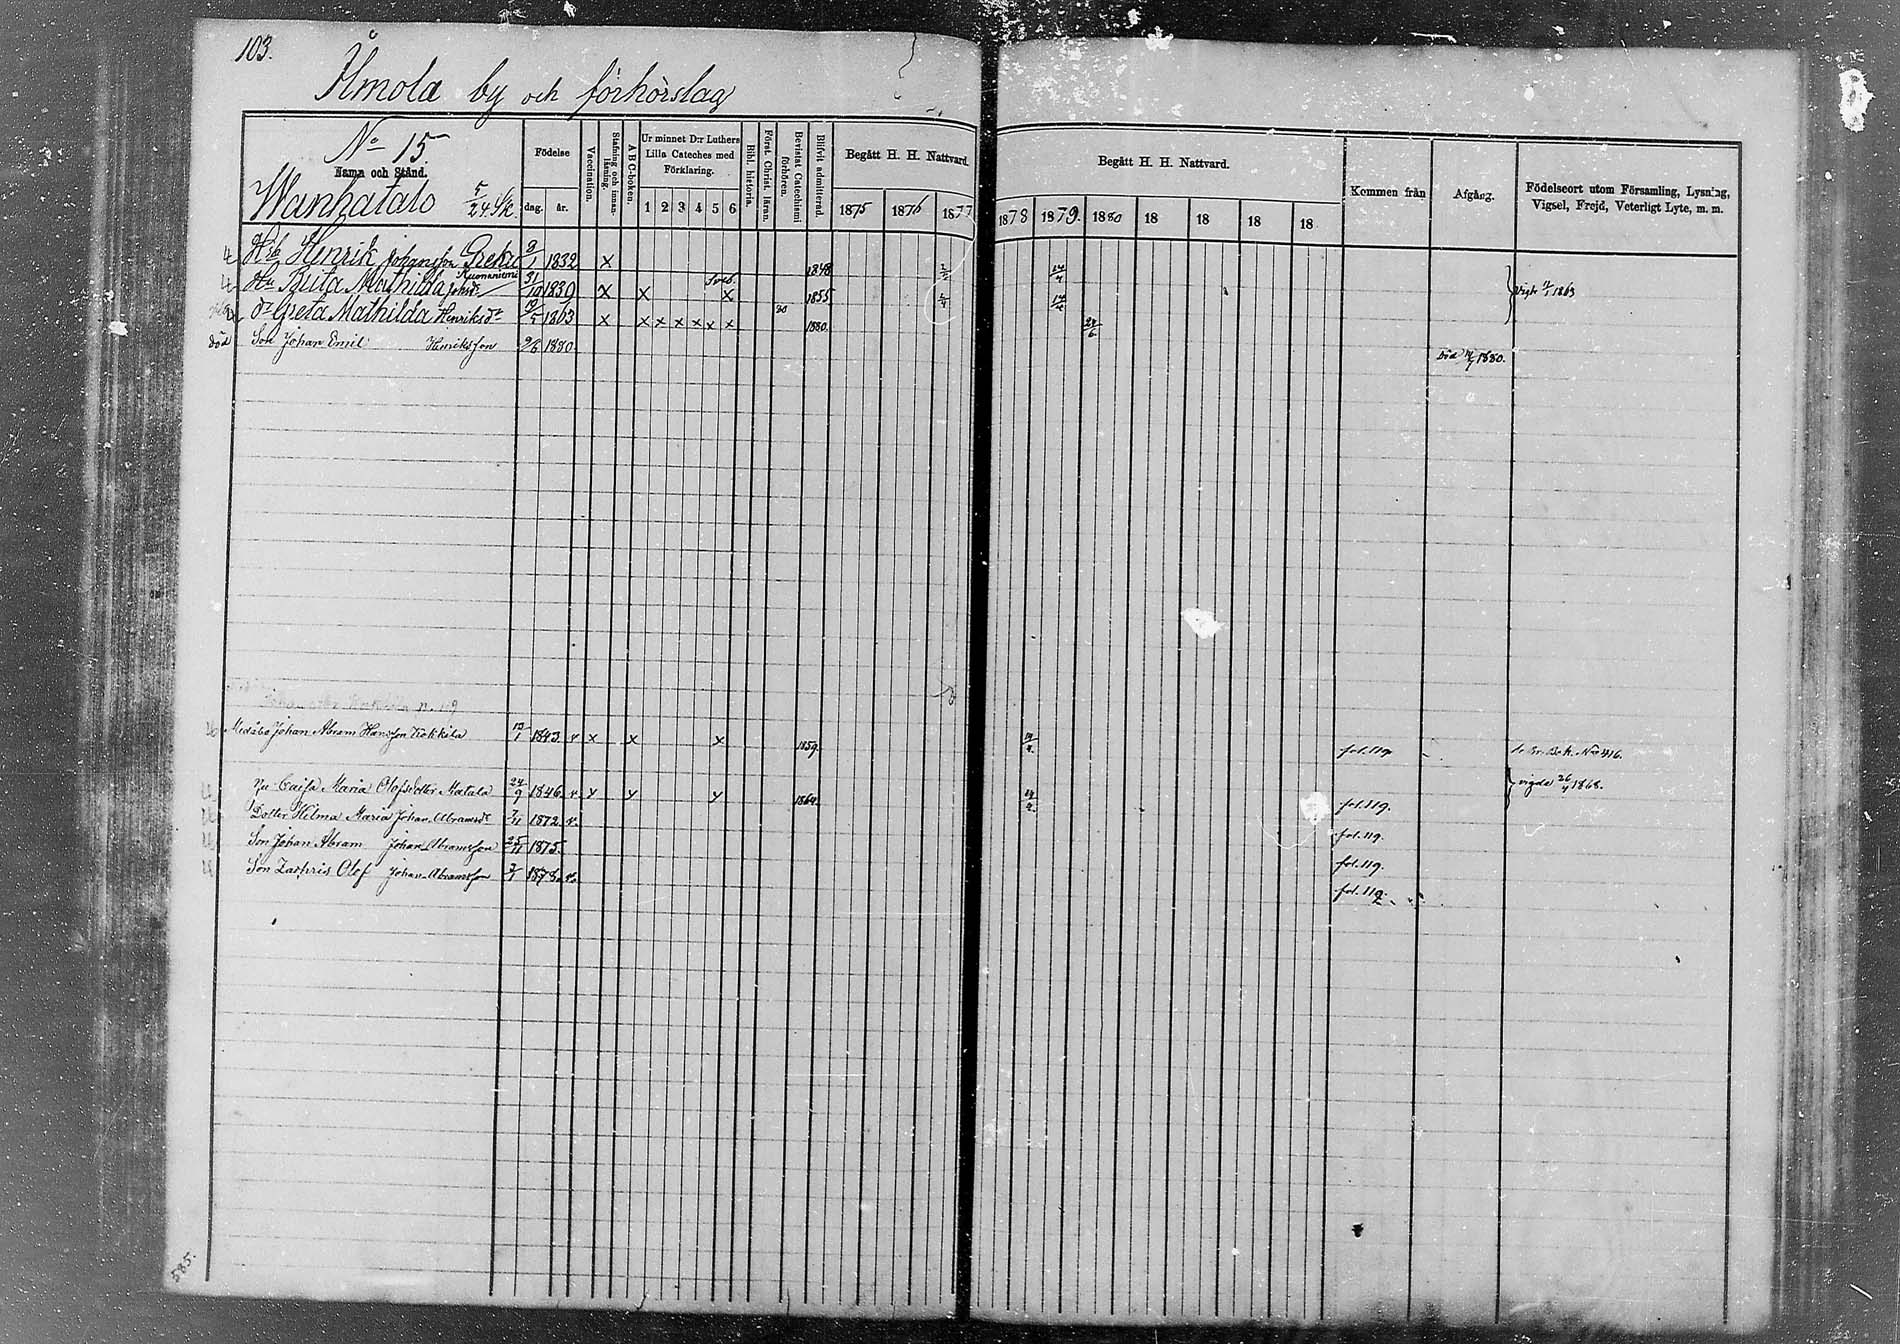 103.
Ålmola by och förhörslag
No 15
Namn och Stånd.
Wanhatalo 5/24
Födelse
dag. år.
Vaccination.
Stafning och innanläsning.
A B C-boken.
Ur minnet D:r Luthers Lilla Cateches med Förklaring.
1 2 3 4 5 6
Bibl. historia.
Först. Christ. läran.
Bevistat Catechismi förhören.
Blifvit admitterad.
Begått H. H. Nattvard.
1875 1876 1877
Begått H. H. Nattvard.
1878 1879. 1880 18 18 18 18
Kommen från
Afgång.
Födelseort utom Församling, Lysning, Vigsel, Frejd, Veterligt Lyte, m. m.
Henrik Johansson 1832 x 1848
Hu Brita Mathilda 31/10 1839 x x x 1855 Vigde 1863
dr Greta Mathilda Henriksdr 1863 x x x x x x x 1880.
död Son Johan Emil Henriksson 9/6 1880. Död 1880.
Johan Abram Hansson 1843. v x x x 1859. fol. 119
Hu Caisa Maria Olofsdotter Matala 24/9 1846. v x x x 1864. fol. 119. vigda 26/4 1868.
Dotter Hilma Maria Johan Abramsdr 7/11 1872. v. fol. 119.
Son Johan Abram Johan Abramsson 25/11 1875. fol. 119.
Son Zachris Olof Johan Abramsson 1878. v. fol. 119
585.